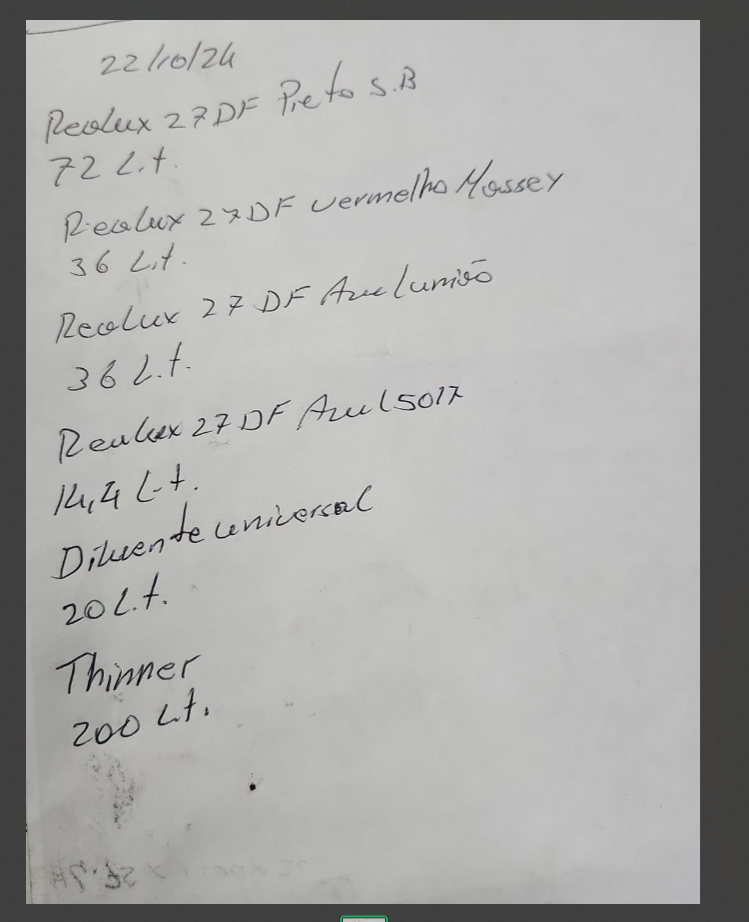 22/10/24
Realux 27DF Preto S.B
72 L.t.
Realux 27DF vermelho Massey
36 L.t.
Realux 27 DF Azul união
36 L.t.
Realux 27 DF Azul 5017
14,4 L.t.
Diluente universal
20 L.t.
Thinner
200 L.t.